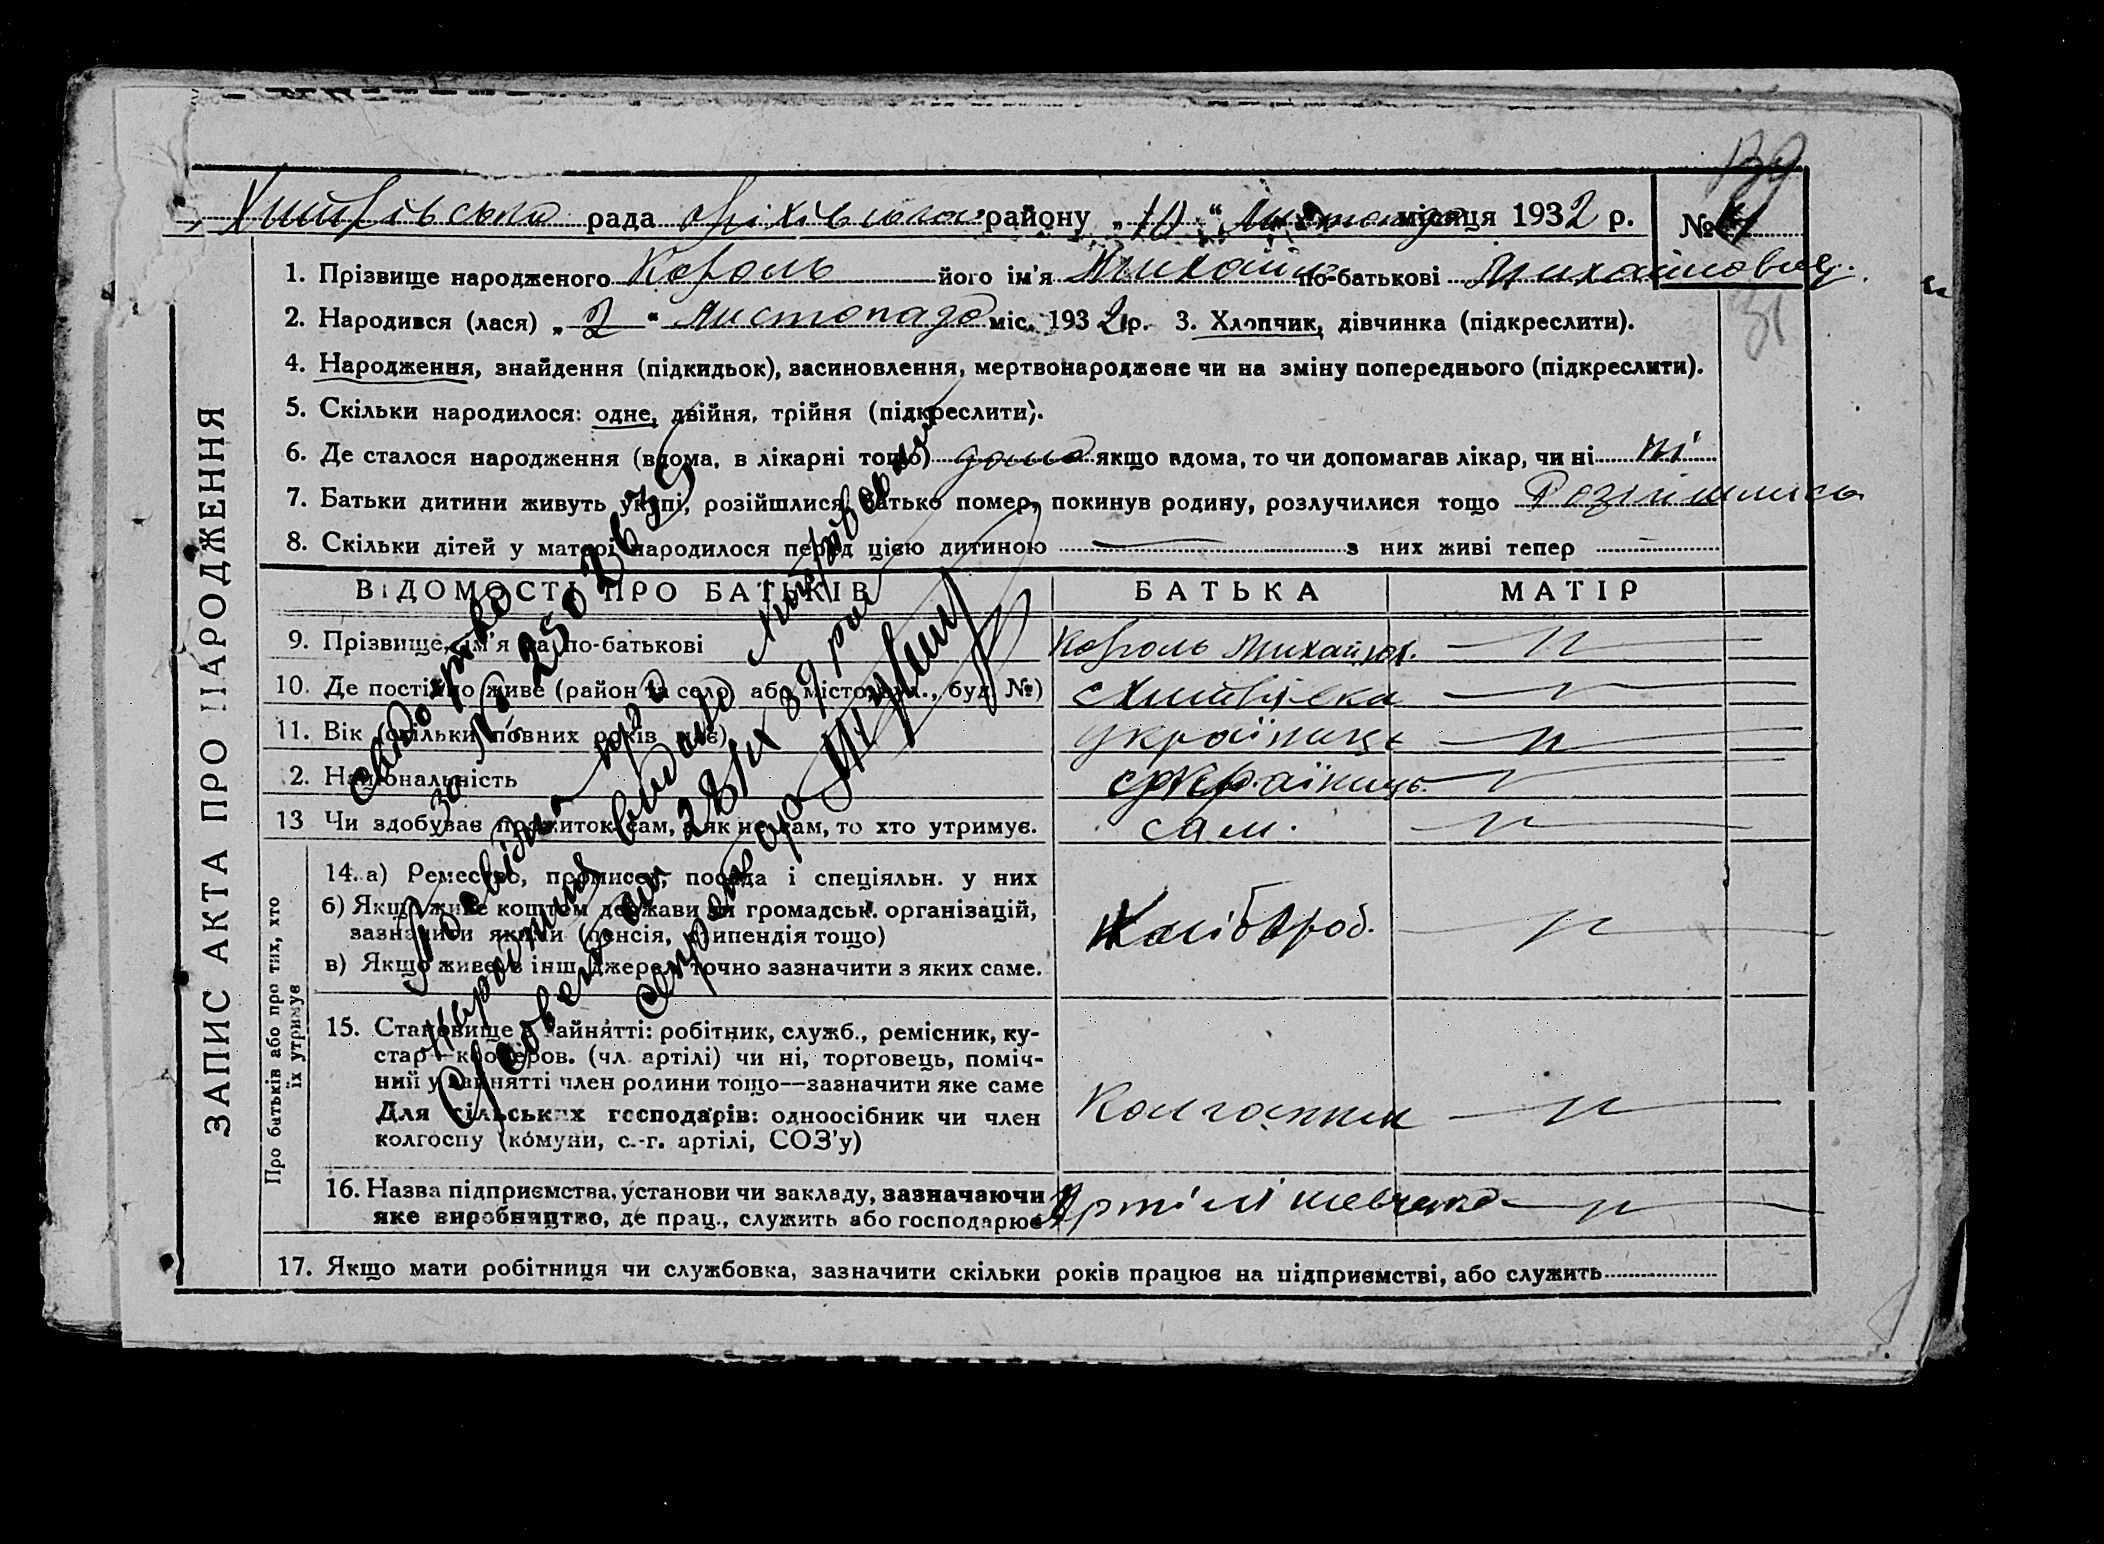 139
рада району „ 10 “ Листопада місяця 1932 р. №
1. Прізвище народженого Король його ім'я Михайло по-батькові Михайлович.
31
2. Народився (лася) „ 2 “ Листопада міс. 1932 р. 3. Хлопчик, дівчинка (підкреслити).
4. Народження, знайдення (підкидьок), засиновлення, мертвонароджене чи на зміну попереднього (підкреслити).
5. Скільки народилося: одне, двійня, трійня (підкреслити).
6. Де сталося народження (вдома, в лікарні тощо) дома якщо вдома, то чи допомагав лікар, чи ні ні
7. Батьки дитини живуть укупі, розійшлися, батько помер, покинув родину, розлучилися тощо Розійшлись
8. Скільки дітей у матері народилося перед цією дитиною — з них живі тепер
ЗАПИС АКТА ПРО НАРОДЖЕННЯ
ВІДОМОСТІ ПРО БАТЬКІВ БАТЬКА МАТІР
9. Прізвище, ім'я та по-батькові Король Михайло
10. Де постійно живе (район та село, або місто, вул., буд. №)
11. Вік (скільки повних років має) Українець
2. Національність Українець
13 Чи здобуває прожиток сам, а як не сам, то хто утримує. сам.
Про батьків або про тих, хто їх утримує
14. а) Ремество, промисел, посада і спеціяльн. у них
б) Якщо живе коштом держави чи громадськ. організацій,
зазначити якими (пенсія, стипендія тощо)
в) Якщо живе з інш. джерел точно зазначити з яких саме.
15. Становище в зайнятті: робітник, служб., ремісник, ку-
стар—кооперов. (чл. артілі) чи ні, торговець, поміч-
ний у зайнятті член родини тощо—зазначити яке саме
Для сільських господарів: одноосібник чи член
колгоспу (комуни, с.-г. артілі, СОЗ'у)
Колгоспник
16. Назва підприємства, установи чи закладу, зазначаючи
яке виробництво, де прац., служить або господарює
Артілі Шевченко
17. Якщо мати робітниця чи службовка, зазначити скільки років працює на підприємстві, або служить
за № 2502639
видано
28/IX 39 року
Секретар